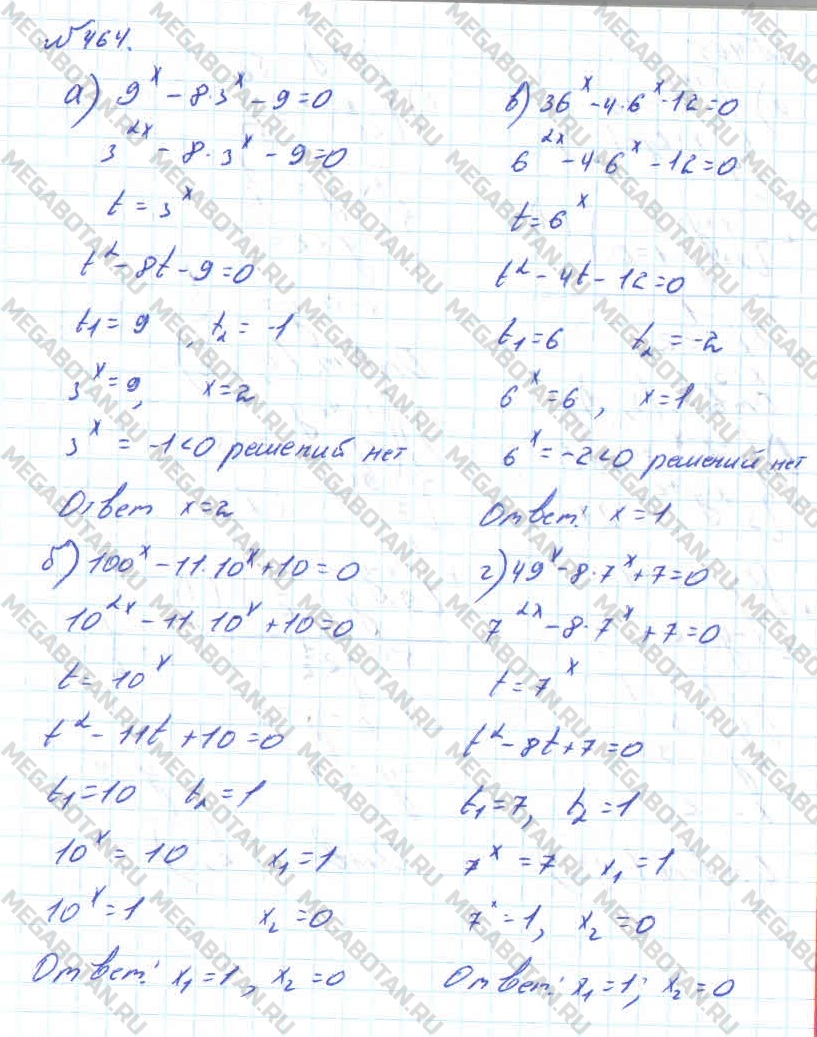 №464.
а) 9^x - 8·3^x - 9 = 0
3^2x - 8·3^x - 9 = 0
t = 3^x
t^2 - 8t - 9 = 0
t1 = 9, t2 = -1
3^x = 9, x = 2
3^x = -1 < 0 решений нет
Ответ x = 2
б) 100^x - 11·10^x + 10 = 0
10^2x - 11·10^x + 10 = 0
t = 10^x
t^2 - 11t + 10 = 0
t1 = 10 t2 = 1
10^x = 10 x1 = 1
10^x = 1 x2 = 0
Ответ: x1 = 1, x2 = 0
в) 36^x - 4·6^x - 12 = 0
6^2x - 4·6^x - 12 = 0
t = 6^x
t^2 - 4t - 12 = 0
t1 = 6 t2 = -2
6^x = 6, x = 1
6^x = -2 < 0 решений нет
Ответ: x = 1
г) 49^x - 8·7^x + 7 = 0
7^2x - 8·7^x + 7 = 0
t = 7^x
t^2 - 8t + 7 = 0
t1 = 7, t2 = 1
7^x = 7 x1 = 1
7^x = 1, x2 = 0
Ответ: x1 = 1; x2 = 0
MEGABOTAN.RU